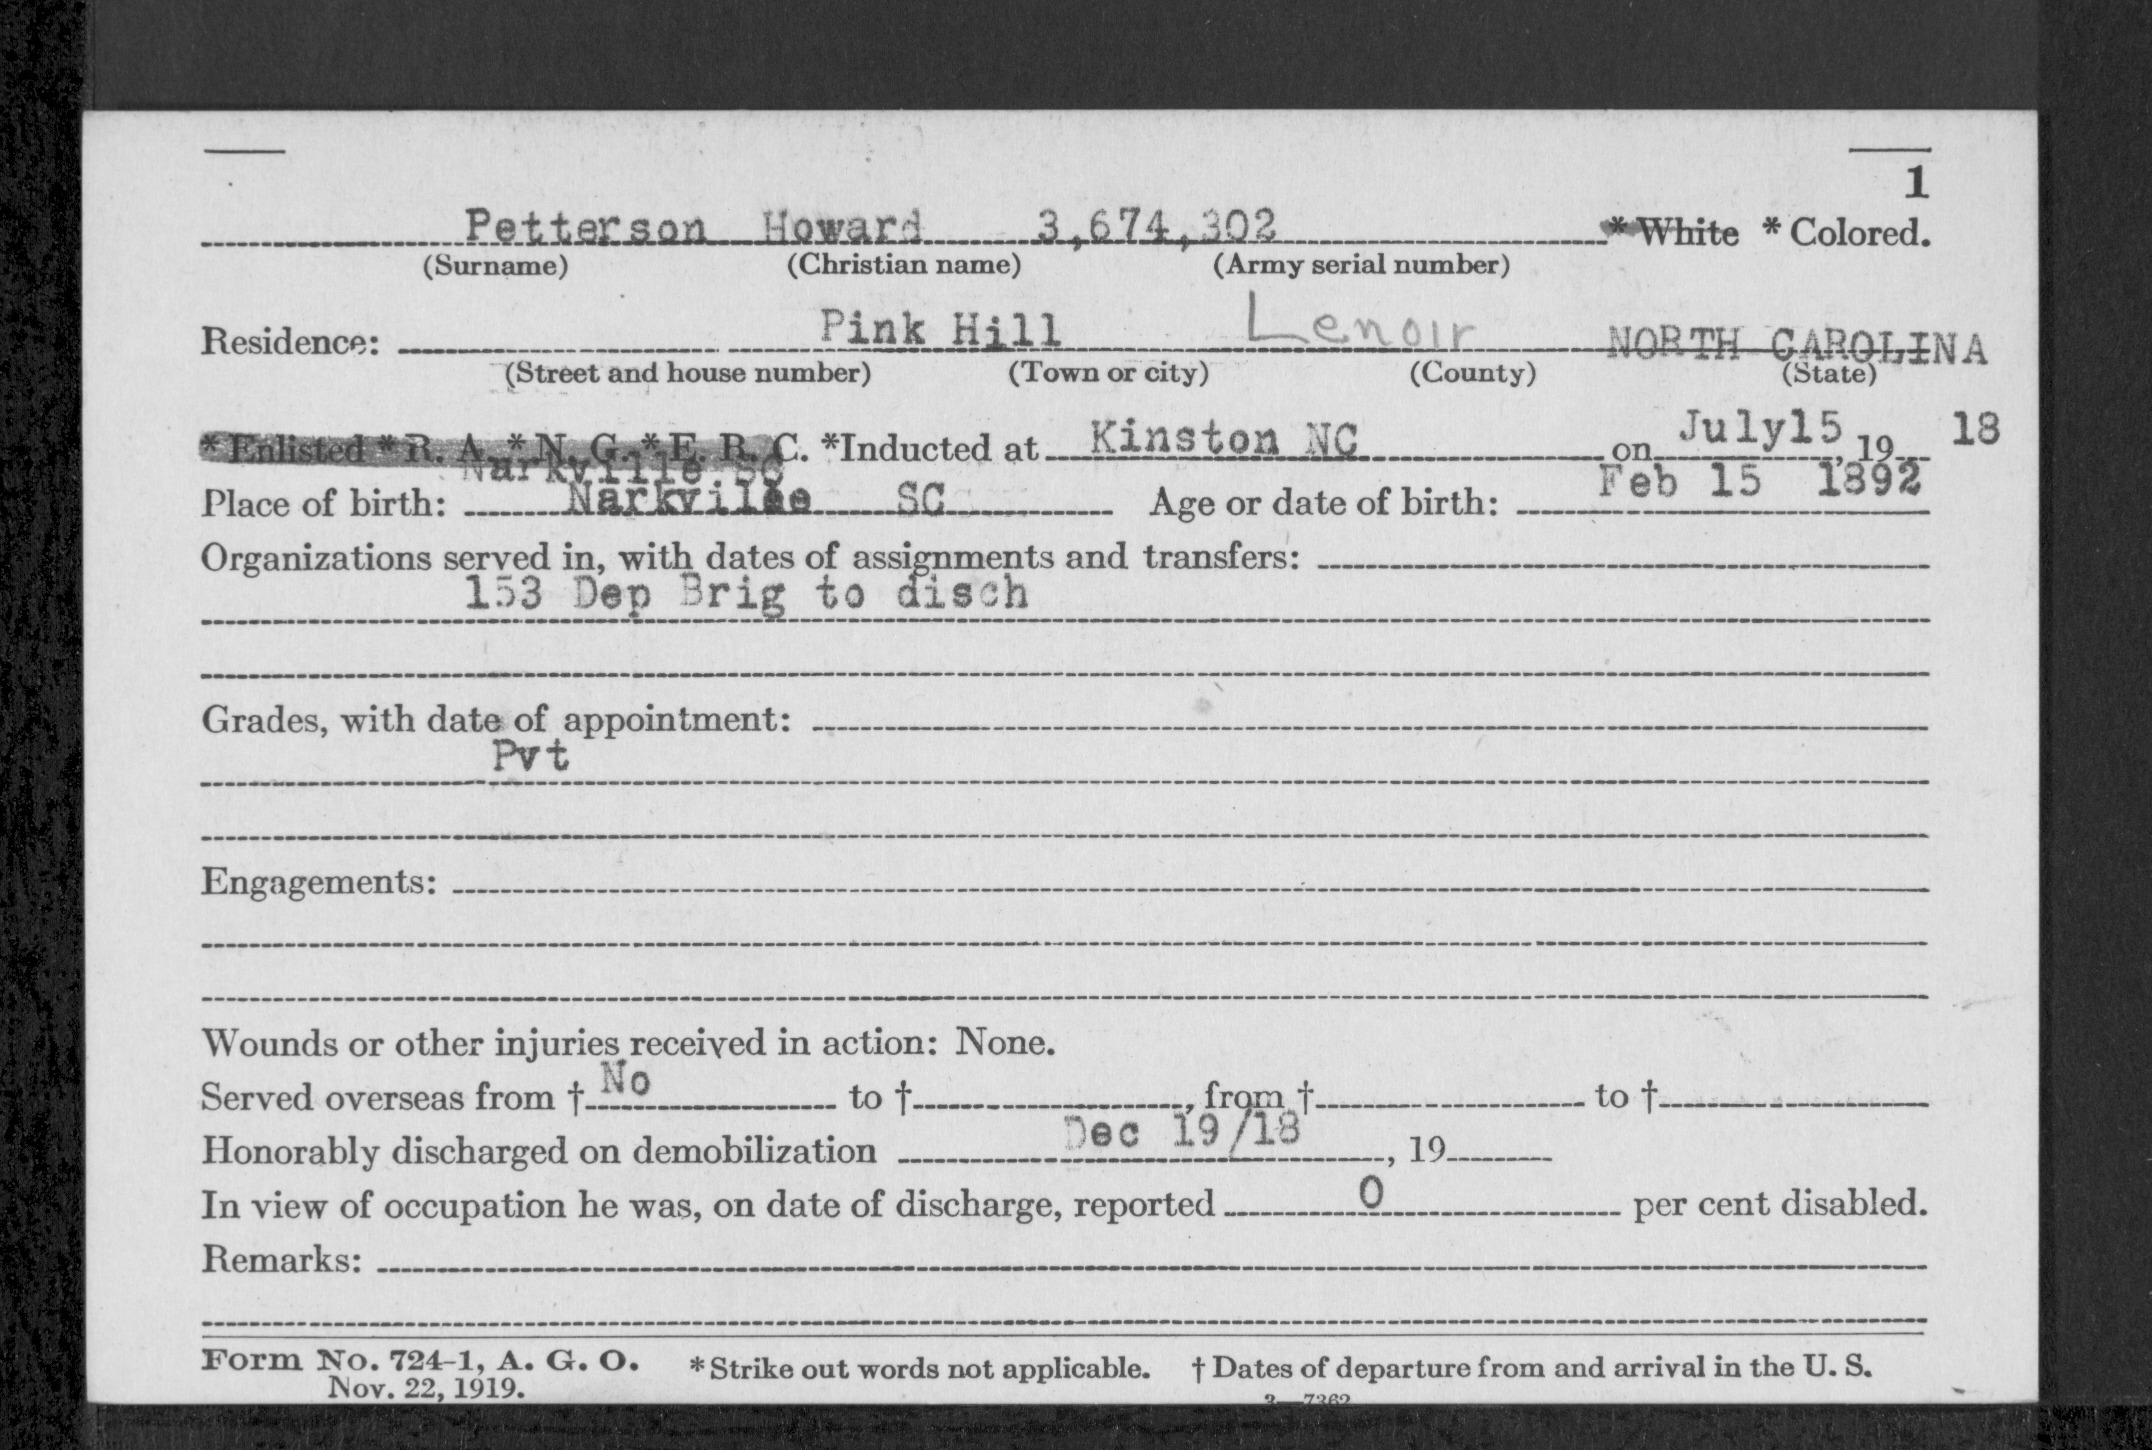 1
Petterson Howard 3,674,302 * White * Colored.
(Surname) (Christian name) (Army serial number)
Residence: Pink Hill Lenoir NORTH CAROLINA
(Street and house number) (Town or city) (County) (State)
* Enlisted * R. A. * N. G. * E. R. C. *Inducted at Kinston NC on July15, 19 18
Narkville SC
Place of birth: Narkville SC Age or date of birth: Feb 15 1892
Organizations served in, with dates of assignments and transfers:
153 Dep Brig to disch
Grades, with date of appointment:
Pvt
Engagements:
Wounds or other injuries received in action: None.
Served overseas from † No to †, from † to †
Honorably discharged on demobilization Dec 19/18, 19
In view of occupation he was, on date of discharge, reported 0 per cent disabled.
Remarks:
Form No. 724-1, A. G. O. * Strike out words not applicable. † Dates of departure from and arrival in the U. S.
Nov. 22, 1919.
3—7362